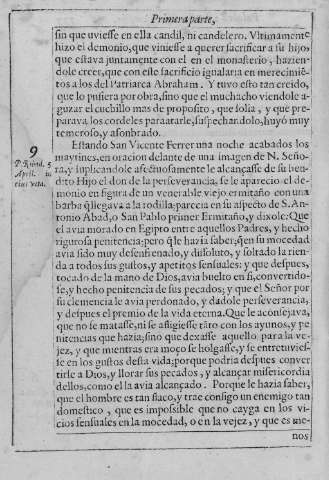 Primera parte,
sin que uviesse en ella candil, ni candelero. Vltimamente
hizo el demonio, que viniesse a querer sacrificar a su hijo,
que estava juntamente con el en el monasterio, hazien-
dole creer, que con este sacrificio igualaria en merecimiē-
tos a los del Patriarca Abraham. Y tuvo esto tan creido,
que lo pusiera por obra, sino que el muchacho viendole a-
guzar el cuchillo mas de proposito, que solia, y que pre-
parava los cordeles para atarle, sospechandolo, huyó muy
temeroso, y asonbrado.
9
Estando San Vicente Ferrer una noche acabados los
maytines, en oracion delante de una imagen de N. Seño-
ra, y suplicandole afectuosamente le alcançasse de su ben-
dito Hijo el don de la perseverancia, se le aparecio el de-
monio en figura de un venerable viejo ermitaño con una
barba q̃ llegava a la rodilla: parecia en su aspecto de S. An-
tonio Abad, o San Pablo primer Ermitaño, y dixole: Que
el avia morado en Egipto entre aquellos Padres, y hecho
rigurosa penitencia; pero q̃ le hazia saber, q̃ en su mocedad
avia sido muy desenfrenado, y dissoluto, y soltado la rien-
da a todos sus gustos, y apetitos sensuales: y que despues,
tocado de la mano de Dios, avia buelto en si, convertido-
se, y hecho penitencia de sus pecados; y que el Señor por
su clemencia le avia perdonado, y dadole perseverancia,
y despues el premio de la vida eterna. Que le aconsejava,
que no se matasse, ni se afligiesse tāto con los ayunos, y pe-
nitencias que hazia; sino que dexasse aquello para la ve-
jez, y que mientras era moço se holgasse, y se entretuvies-
se en los gustos desta vida; porque podria despues conver
tirse a Dios, y llorar sus pecados, y alcançar misericordia
dellos, como el la avia alcançado. Porque le hazia saber,
que el hombre es tan flaco, y trae consigo un enemigo tan
domestico, que es impossible que no cayga en los vi-
cios sensuales en la mocedad, o en la vejez, y que es me-
nos